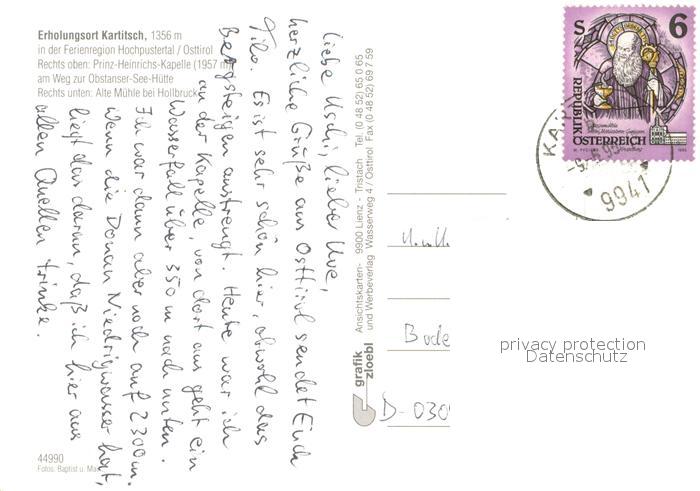 Erholungsort Kartitsch, 1356 m
in der Ferienregion Hochpustertal / Osttirol
Rechts oben: Prinz-Heinrichs-Kapelle (1957 m)
am Weg zur Obstanser-See-Hütte
Rechts unten: Alte Mühle bei Hollbruck
liebe Uschi, lieber Uwe,
herzliche Grüße aus Osttirol sendet Euch
Tilo. Es ist sehr schön hier, obwohl das
Bergsteigen anstrengt. Heute war ich
an der Kapelle, von dort aus geht ein
Wasserfall über 350 m nach unten.
Ich war dann aber noch auf 2300 m.
Wenn die Donau Niedrigwasser hat,
liegt das daran, daß ich hier aus
allen Quellen trinke.
44990
Fotos: Baptist u. Mair
grafik
zloebl
Ansichtskarten- 9900 Lienz - Tristach Tel. (0 48 52) 65 0 65
und Werbeverlag Wasserweg 4 / Osttirol Fax (0 48 52) 69 7 59
S 6
REPUBLIK
ÖSTERREICH
9941
Bode
D-030
privacy protection
Datenschutz